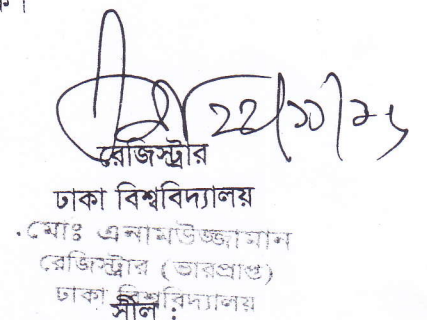 ২২/১০/২৫
রেজিস্ট্রার
ঢাকা বিশ্ববিদ্যালয়
মোঃ এনামউজ্জামান
রেজিস্ট্রার (ভারপ্রাপ্ত)
ঢাকা বিশ্ববিদ্যালয়
সীল :